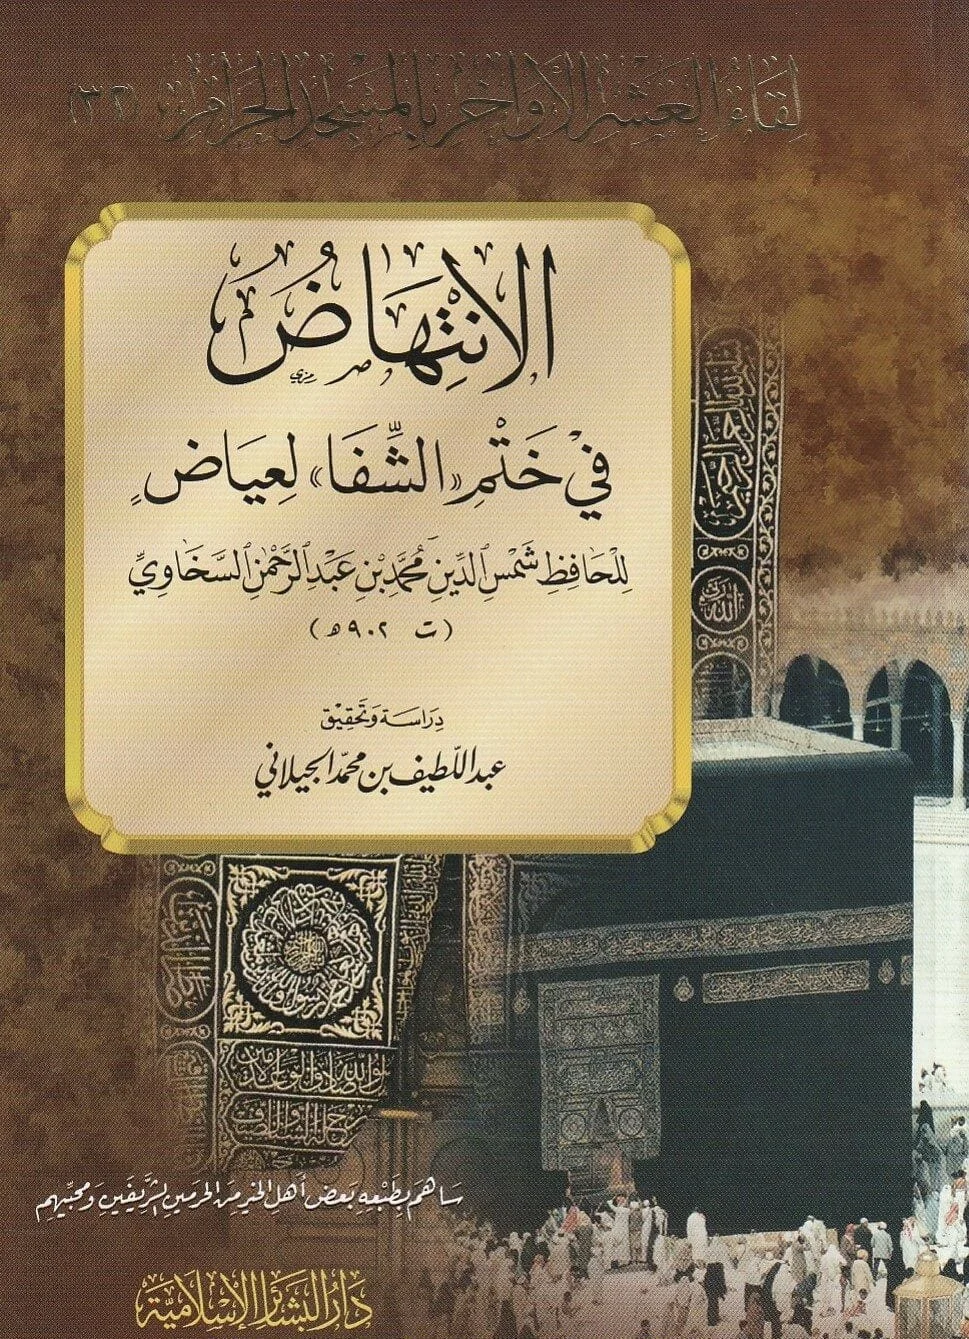 لقاء العشر الأواخر بالمسجد الحرام (٣٢)
الِانْتِهَاضُ
فِي خَتْمِ «الشِّفَا» لِعِيَاضٍ
لِلْحَافِظِ شَمْسِ الدِّينِ مُحَمَّدِ بْنِ عَبْدِ الرَّحْمٰنِ السَّخَاوِيِّ
(ت ٩٠٢ هـ)
دِرَاسَة وَتَحقِيق
عبد اللّطيف بن محمّد الجيلاني
سَاهَمَ بِطَبْعِهِ بَعضُ أَهْلِ الخَيرِ مِنَ الحَرمَينِ الشَّرِيفَينِ وَمُحِبِّيهِم
دَارُ البَشَائِرِ الإِسْلَامِيَّة